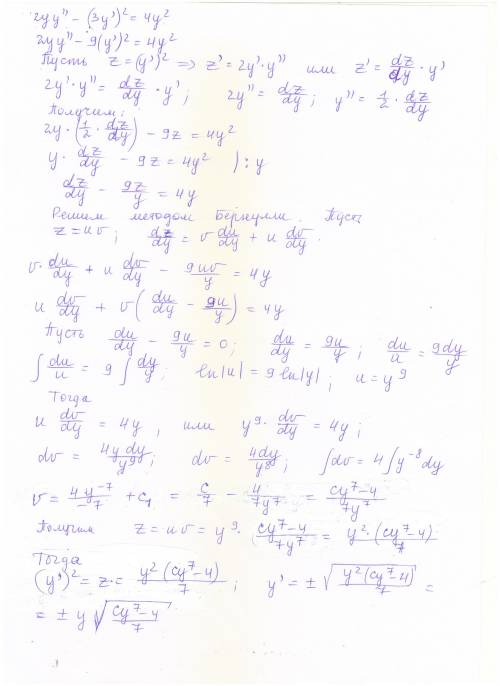 2yy'' - (3y')² = 4y²
2yy'' - 9(y')² = 4y²
Пусть z = (y')² ⇒ z' = 2y'·y'' или z' = dz/dy · y'
2y'·y'' = dz/dy · y'; 2y'' = dz/dy; y'' = 1/2 · dz/dy
Получим:
2y·(1/2 · dz/dy) - 9z = 4y²
y · dz/dy - 9z = 4y² ) : y
dz/dy - 9z/y = 4y
Решим методом Бернулли. Пусть
z = uv; dz/dy = v du/dy + u dv/dy.
v· du/dy + u dv/dy - 9uv/y = 4y
u dv/dy + v( du/dy - 9u/y ) = 4y
Пусть du/dy - 9u/y = 0; du/dy = 9u/y; du/u = 9dy/y
∫ du/u = 9 ∫ dy/y; ln|u| = 9 ln|y|; u = y⁹
Тогда
u dv/dy = 4y, или y⁹· dv/dy = 4y;
dv = 4y dy/y⁹; dv = 4dy/y⁸; ∫dv = 4∫y⁻⁸dy
v = 4y⁻⁷/-7 + c₁ = c/7 - 4/7y⁷ = cy⁷-4/7y⁷
Получим z = uv = y⁹ · cy⁷-4/7y⁷ = y²·(cy⁷-4)/7
Тогда
(y')² = z = y²(cy⁷-4)/7; y' = ± √(y²(cy⁷-4)/7) =
= ± y √(cy⁷-4/7)